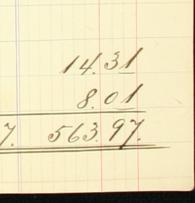 14.31
8.01
7. 563.97.